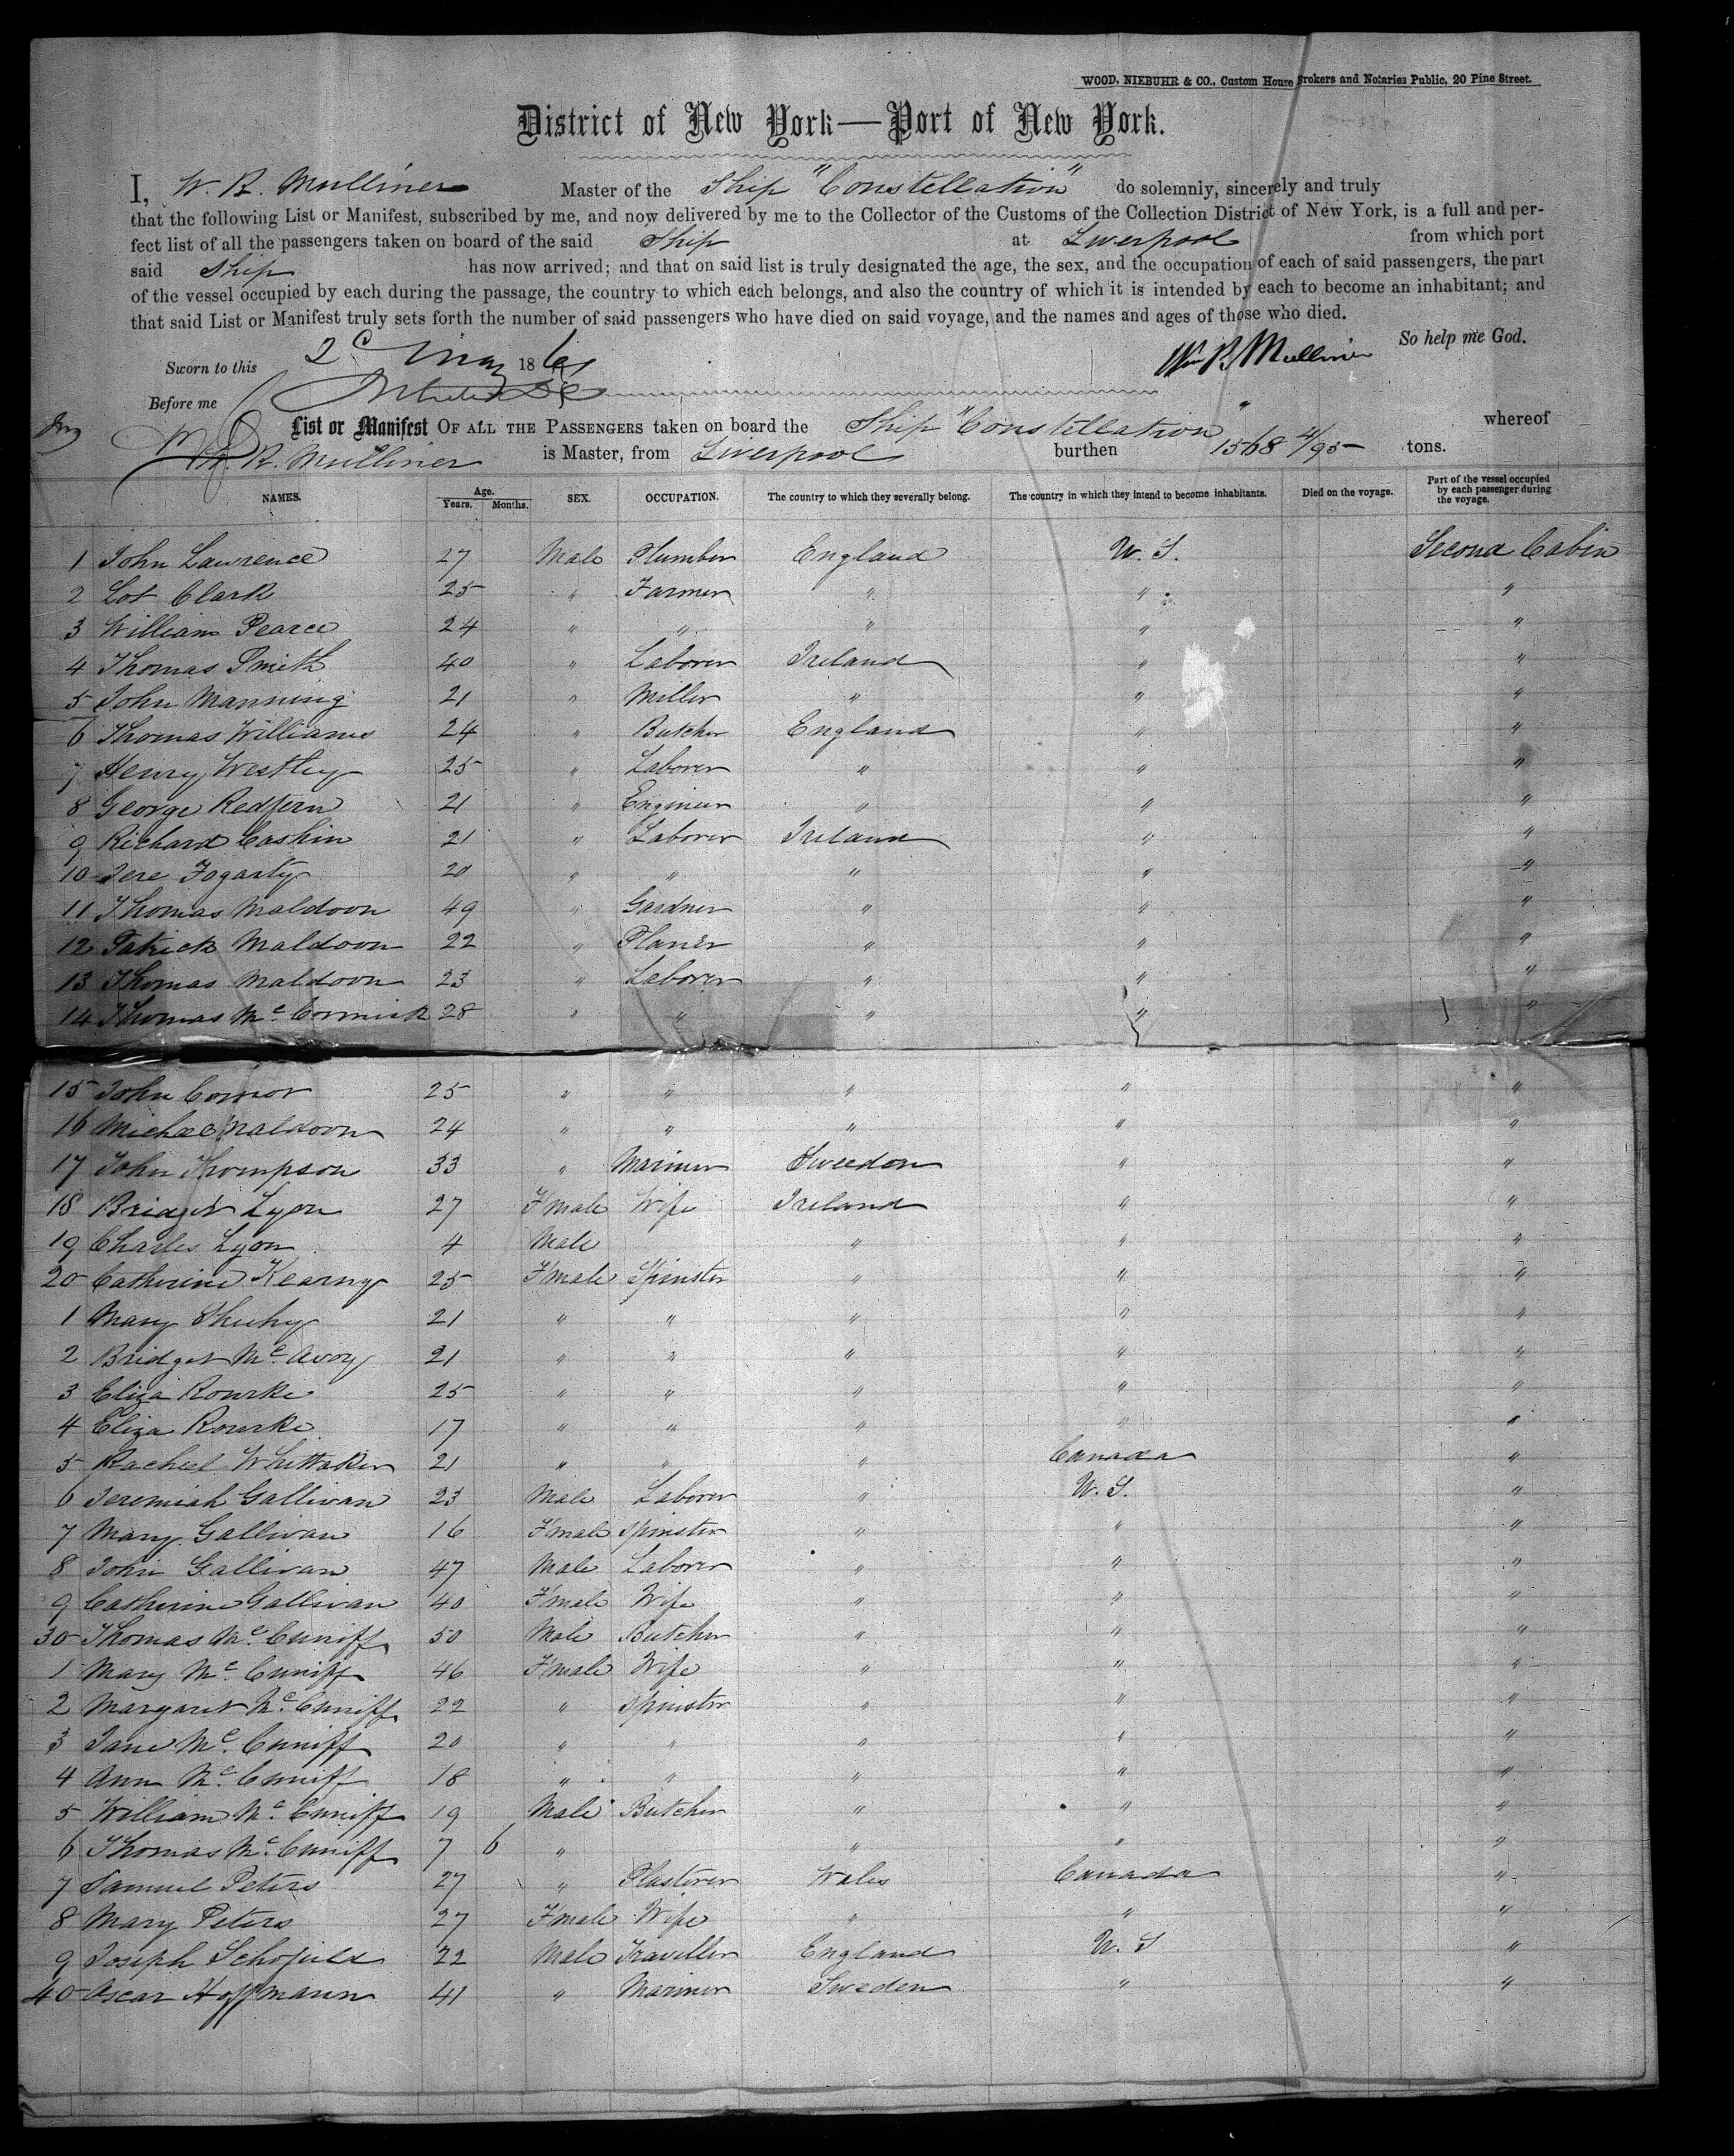 WOOD, NIEBUHR & CO., Custom House Brokers and Notaries Public, 20 Pine Street.
District of New York—Port of New York.
I, W. R. Mulliner Master of the Ship "Constellation" do solemnly, sincerely and truly
that the following List or Manifest, subscribed by me, and now delivered by me to the Collector of the Customs of the Collection District of New York, is a full and per-
fect list of all the passengers taken on board of the said Ship at Liverpool from which port
said Ship has now arrived; and that on said list is truly designated the age, the sex, and the occupation of each of said passengers, the part
of the vessel occupied by each during the passage, the country to which each belongs, and also the country of which it is intended by each to become an inhabitant; and
that said List or Manifest truly sets forth the number of said passengers who have died on said voyage, and the names and ages of those who died.
So help me God.
Sworn to this 2d May 186 Wm R. Mulliner
Before me
List or Manifest OF ALL THE PASSENGERS taken on board the Ship "Constellation" whereof
W. R. Mulliner is Master, from Liverpool burthen 1568 4/95 tons.
NAMES. Age. Years. Months. SEX. OCCUPATION. The country to which they severally belong. The country in which they intend to become inhabitants. Died on the voyage. Part of the vessel occupied by each passenger during the voyage.
1 John Lawrence 27 Male Plumber England U. S. Second Cabin
2 Lot Clark 25 " Farmer " " "
3 William Pearce 24 " " " " "
4 Thomas Smith 40 " Laborer Ireland " "
5 John Manning 21 " Miller " " "
6 Thomas Williams 24 " Butcher England " "
7 Henry Westley 25 " Laborer " " "
8 George Redfern 21 " Engineer " " "
9 Richard Cashin 21 " Laborer Ireland " "
10 Jere Fogarty 20 " " " " "
11 Thomas Maldoon 49 " Gardner " " "
12 Patrick Maldoon 22 " Planer " " "
13 Thomas Maldoon 23 " Laborer " " "
14 Thomas Mc. Cormick 28 " " " " "
15 John Connor 25 " " " " "
16 Michael Maldoon 24 " " " " "
17 John Thompson 33 " Mariner Sweedon " "
18 Bridget Lyon 27 F'male Wife Ireland " "
19 Charles Lyon 4 Male " " "
20 Catherine Kearny 25 F'male Spinster " " "
1 Mary Shuhy 21 " " " " "
2 Bridget Mc. Avoy 21 " " " " "
3 Eliza Rourke 25 " " " " "
4 Eliza Rourke 17 " " " " "
5 Rachel Whittaker 21 " " " Canada "
6 Jeremiah Gallivan 23 Male Laborer " U. S. "
7 Mary Gallivan 16 F'male Spinster " " "
8 John Gallivan 47 Male Laborer " " "
9 Catherine Gallivan 40 F'male Wife " " "
30 Thomas Mc. Cuniff 50 Male Butcher " " "
1 Mary Mc. Cuniff 46 F'male Wife " " "
2 Margaret Mc. Cunniff 22 " Spinster " " "
3 Jane Mc. Cuniff 20 " " " " "
4 Ann Mc. Cuniff 18 " " " " "
5 William Mc. Cuniff 19 Male Butcher " " "
6 Thomas Mc. Cuniff 7 6 " " " "
7 Samuel Peters 27 " Plasterer Wales Canada "
8 Mary Peters 27 F'male Wife " " "
9 Joseph Schofield 22 Male Traveller England U. S "
40 Oscar Hoffmann 41 " Mariner Sweden " "